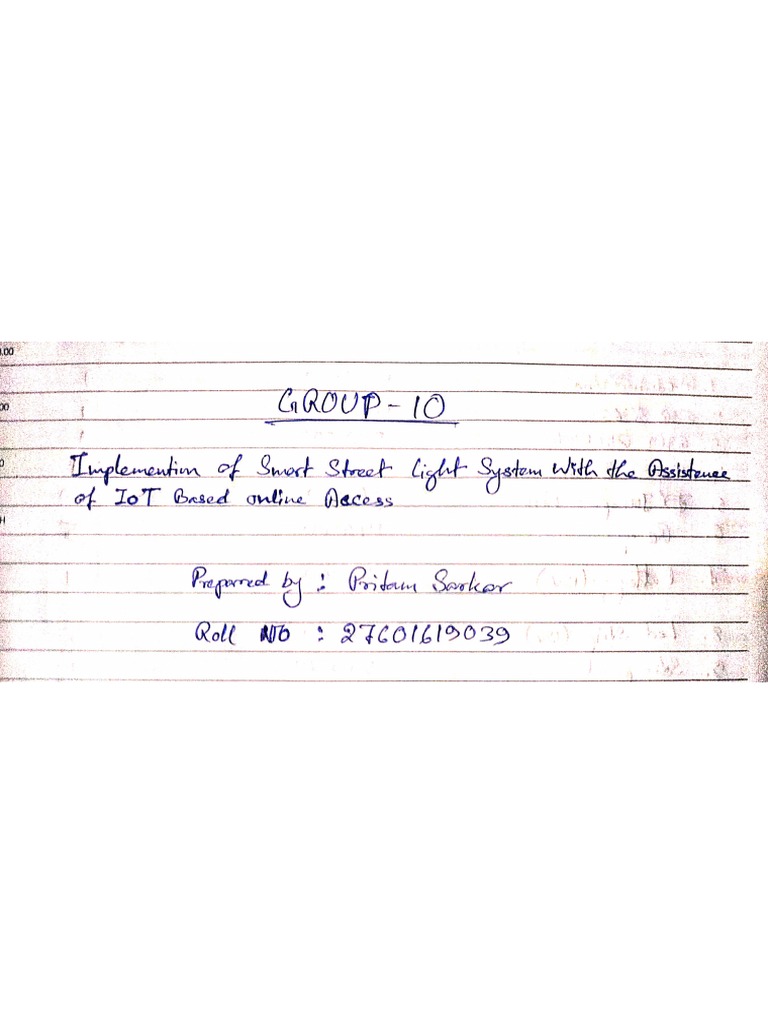 GROUP-10
Implemention of Smart Street Light System With the Assistence
of IoT Based online Access
Preparred by : Pritam Sarkar
Roll No : 27601619039